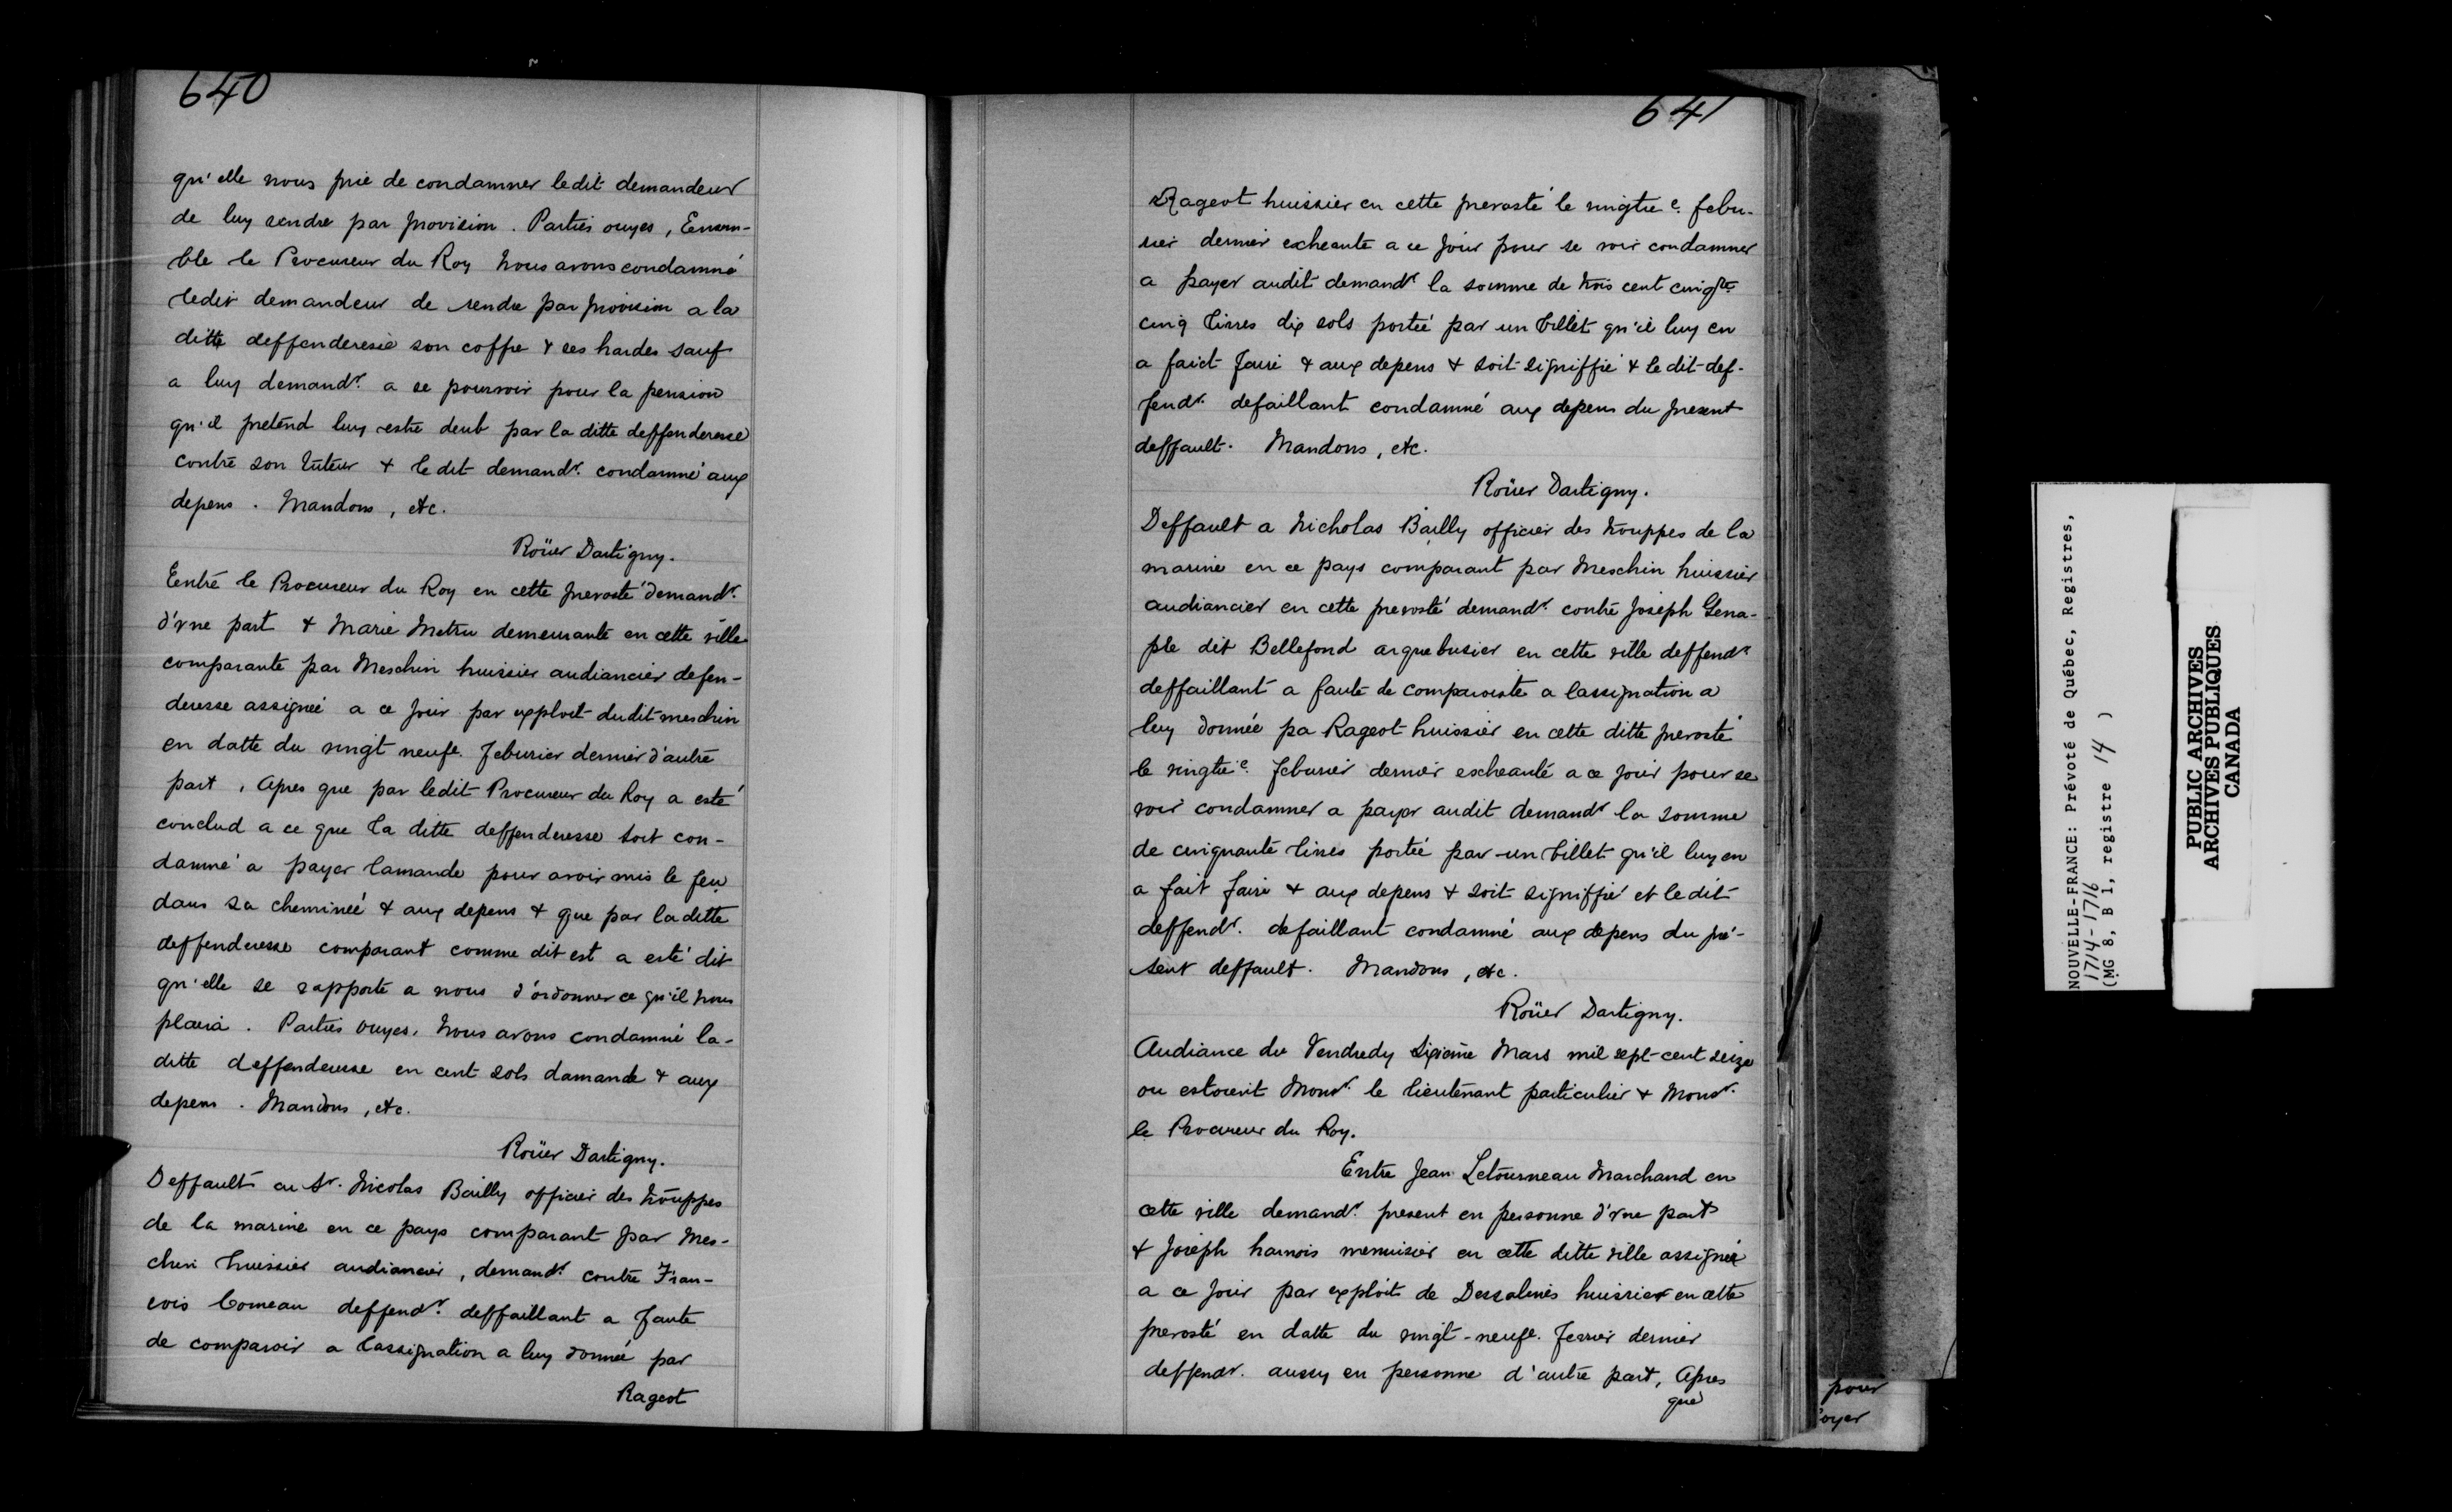 640
qu'elle nous prie de condamner ledit demandeur
de luy rendre par provision. Parties ouyes, Ensem-
ble le Procureur du Roy Nous avons condamné
ledit demandeur de rendre par provision a la
ditte deffenderesse son coffre & ses hardes sauf
a luy demandr. a se pourvoir pour la pension
qu'il prétend luy estre deub par la ditte deffenderesse
contre son tuteur & le dit demandr. condamné aux
depens. Mandons, etc.
Roüer Dartigny.
Entre le Procureur du Roy en cette prevosté demandr.
d'vne part & Marie Metru demeurante en cette ville
comparante par Meschin huissier audiancier defen-
deresse assignée a ce jour par exploit dudit meschin
en datte du vingt neufe. feburier dernier d'autre
part, Apres que par ledit Procureur du Roy a esté
conclud a ce que la ditte deffenderesse soit con-
damné a payer lamande pour avoir mis le feu
dans sa cheminée & aux depens & que par la ditte
deffenderesse comparant comme dit est a esté dit
qu'elle se rapporte a nous d'ordonner ce qu'il nous
plaira. Parties ouyes, Nous avons condamné la-
ditte deffenderesse en cent sols damande & aux
depens. Mandons, etc.
Roüer Dartigny.
Deffault au Sr. Nicolas Bailly officier des trouppes
de la marine en ce pays comparant par Mes-
chin huissier audiancier, demandr. contre Fran-
cois Comeau deffendr. deffaillant a faute
de comparoir a lassignation a luy donnée par
Rageot
641
Rageot huissier en cette prevosté le vingtie. febu-
rier dernier escheante a ce jour pour se voir condamner
a payer audit demandr la somme de trois cent cinqte.
cinq livres dix sols portée par un billet qu'il luy en
a faict faire & aux depens & soit signiffié & le dit def-
fendr. defaillant condamné aux depens du present
deffault. Mandons, etc.
Roüer Dartigny.
Deffault a Nicholas Bailly officier des trouppes de la
marine en ce pays comparant par Meschin huissier
audiancier en cette prevosté demandr. contre Joseph Gena-
ple dit Bellefond arquebusier en cette ville deffendr
deffaillant a faute de comparoiste a lassignation a
luy donnée pa Rageot huissier en cette ditte prevosté
le vingtie. feburier dernier escheante a ce jour pour se
voir condamner a payer audit demandr la somme
de cinquante livres portée par un billet qu'il luy en
a fait faire & aux depens & soit signiffié et le dit
deffendr. defaillant condamné aux depens du pré-
sent deffault. Mandons, etc.
Roüer Dartigny.
Audiance du Vendredy Sixieme Mars mil sept-cent seize
ou estoient Monsr. le lieutenant particulier & Monsr.
le Procureur du Roy.
Entre Jean Letourneau Marchand en
cette ville demandr. present en personne d'vne part
& Joseph harnois menuisier en cette ditte ville assigné
a ce jour par exploit de Dessalines huissier en cette
prevosté en datte du vingt-neufe. fevrier dernier
deffendr. aussy en personne d'autre part, Apres
que
pour
oyer
NOUVELLE-FRANCE: Prévoté de Québec, Registres,
1714-1716
(MG 8, B 1, registre 14 )
PUBLIC ARCHIVES
ARCHIVES PUBLIQUES
CANADA